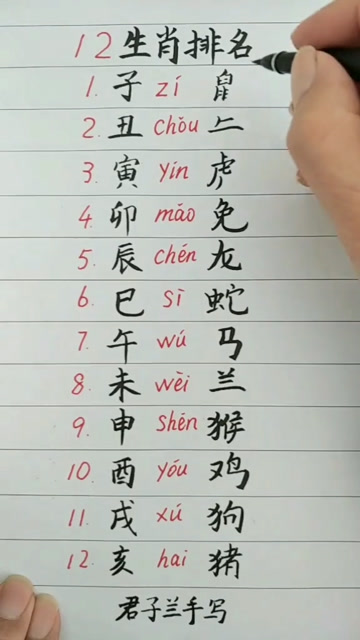 12生肖排名
1. 子 zí 鼠
2. 丑 chǒu
3. 寅 yín 虎
4. 卯 mǎo 免
5. 辰 chén 龙
6. 巳 sì 蛇
7. 午 wú 马
8. 未 wèi 兰
9. 申 shēn 猴
10. 酉 yóu 鸡
11. 戌 xú 狗
12. 亥 hai 猪
君子兰手写